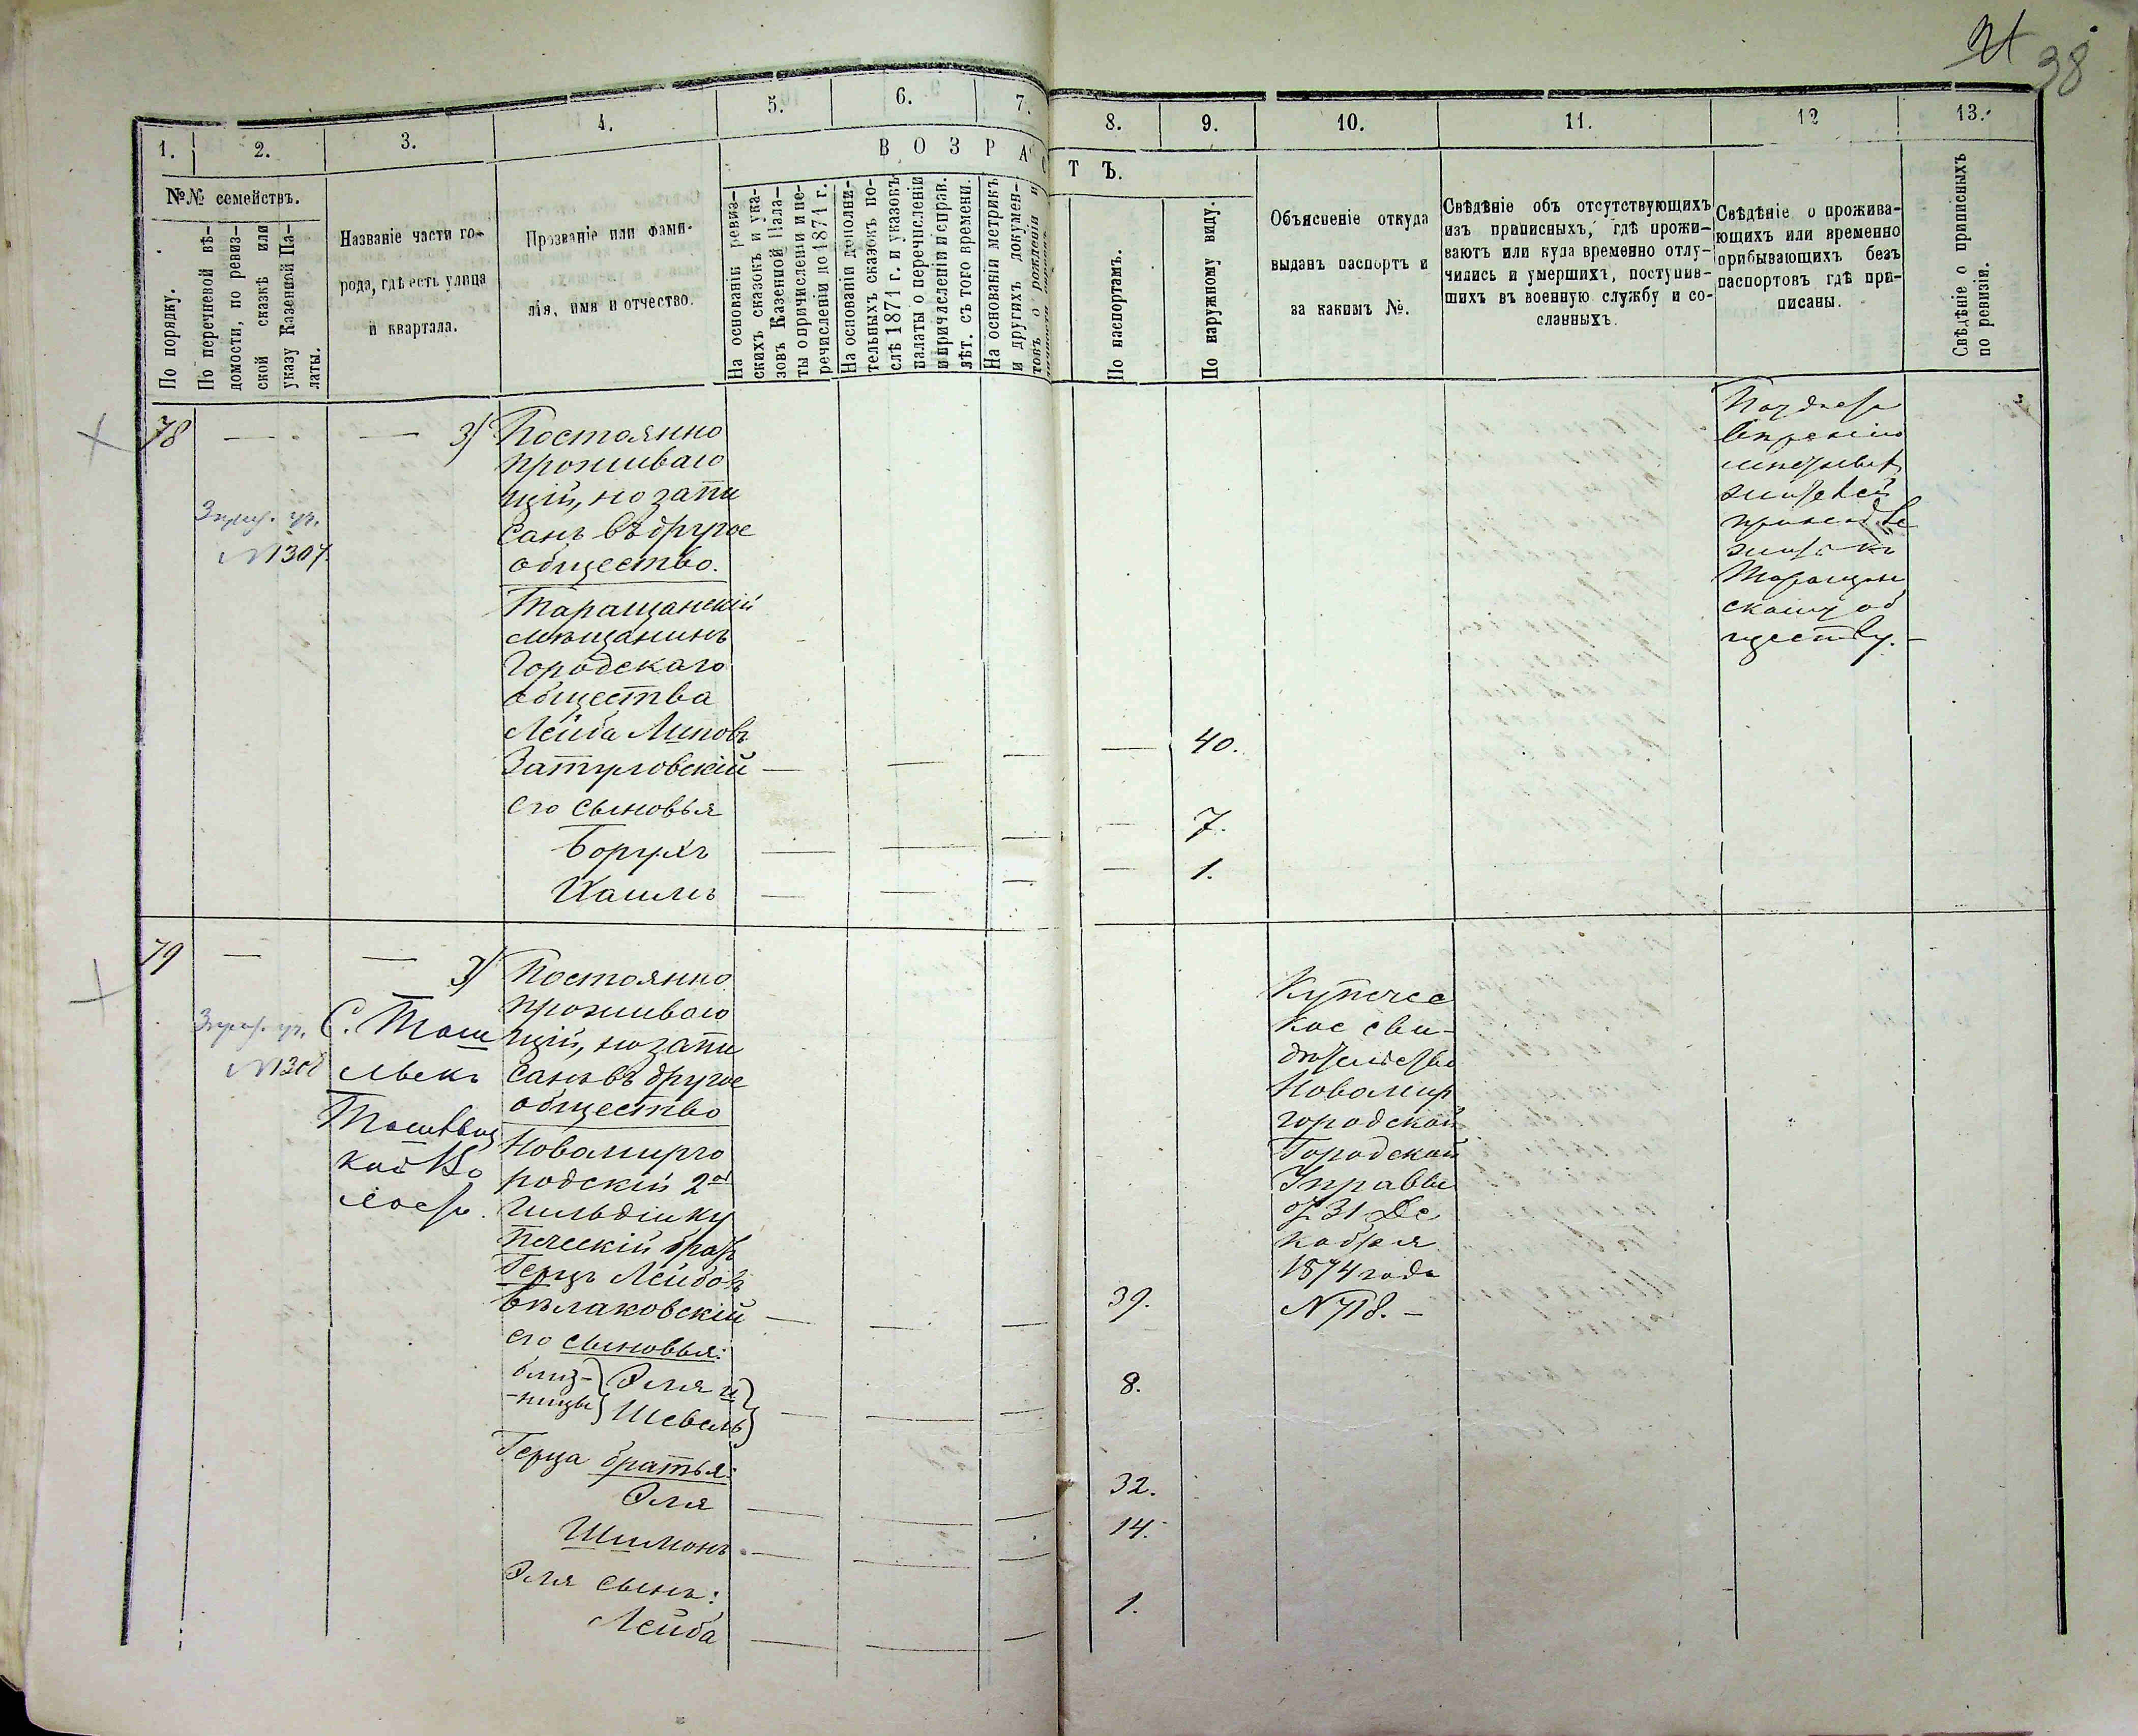 38
1.
2.
3.
4.
5.
6.
7.
8.
9.
10.
11.
12
13.
В О З Р А С Т Ъ.
№№ семействъ.
По порядку.
По перечневой вѣ-
домости, по ревиз-
ской сказкѣ или
указу Казенной Па-
латы.
Названіе части го-
рода, гдѣ есть улица
и квартала.
Прозваніе или фами-
лія, имя и отчество.
На основаніи ревиз-
скихъ сказокъ и ука-
зовъ Казенной Пала-
ты о причисленіи и пе-
речисленіи до 1871 г.
На основаніи дополни-
тельныхъ сказокъ по-
слѣ 1871 г. и указовъ
палаты о перечисленіи
и причисленіи исправ.
лѣт. съ того времени.
На основаніи метрикъ
и другихъ докумен-
товъ о рожденіи и
По паспортамъ.
По наружному виду.
Объясненіе откуда
выданъ паспортъ и
за какимъ №.
Свѣдѣніе объ отсутствующихъ
изъ приписныхъ, гдѣ прожи-
ваютъ или куда временно отлу-
чились и умершихъ, поступив-
шихъ въ военную службу и со-
сланныхъ.
Свѣдѣніе о прожива-
ющихъ или временно
прибывающихъ безъ
паспортовъ гдѣ при-
писаны.
Свѣдѣніе о приписныхъ
по ревизіи.
78 — — 3/
№ 1307.
Постоянно
проживаю
щій, но запи
санъ въ другое
общество.
Таращанскій
мѣщанинъ
Городскаго
общества
Лейба Мшновъ
Затуловскій — — — — 40.
его сыновья
Борухъ — — — — 7.
Хаимъ — — — — 1.
принад
Таращан
скому об
ществу. —
79 — — 3/
С. Таш
лыкъ
Ташлыц
кой Во
лост.
Постоянно
проживаю
щій, но запи
санъ въ другое
общество
Новомирго
родскій 2ой
Гильдіи ку
печескій братъ
Герцъ Лейбовъ
Бѣлаковскій — — — 39.
его сыновья:
близ-
-нецы
Эля и
Шевель — — — 8.
Герца братья:
Эля — — — 32.
Шимонъ — — — 14.
Эля сынъ:
Лейба — — — 1.
Купечес
кое сви-
дѣтельство
Новомир
городской
Городской
Управы
от 31 Де
кабря
1874 года
N 718. —